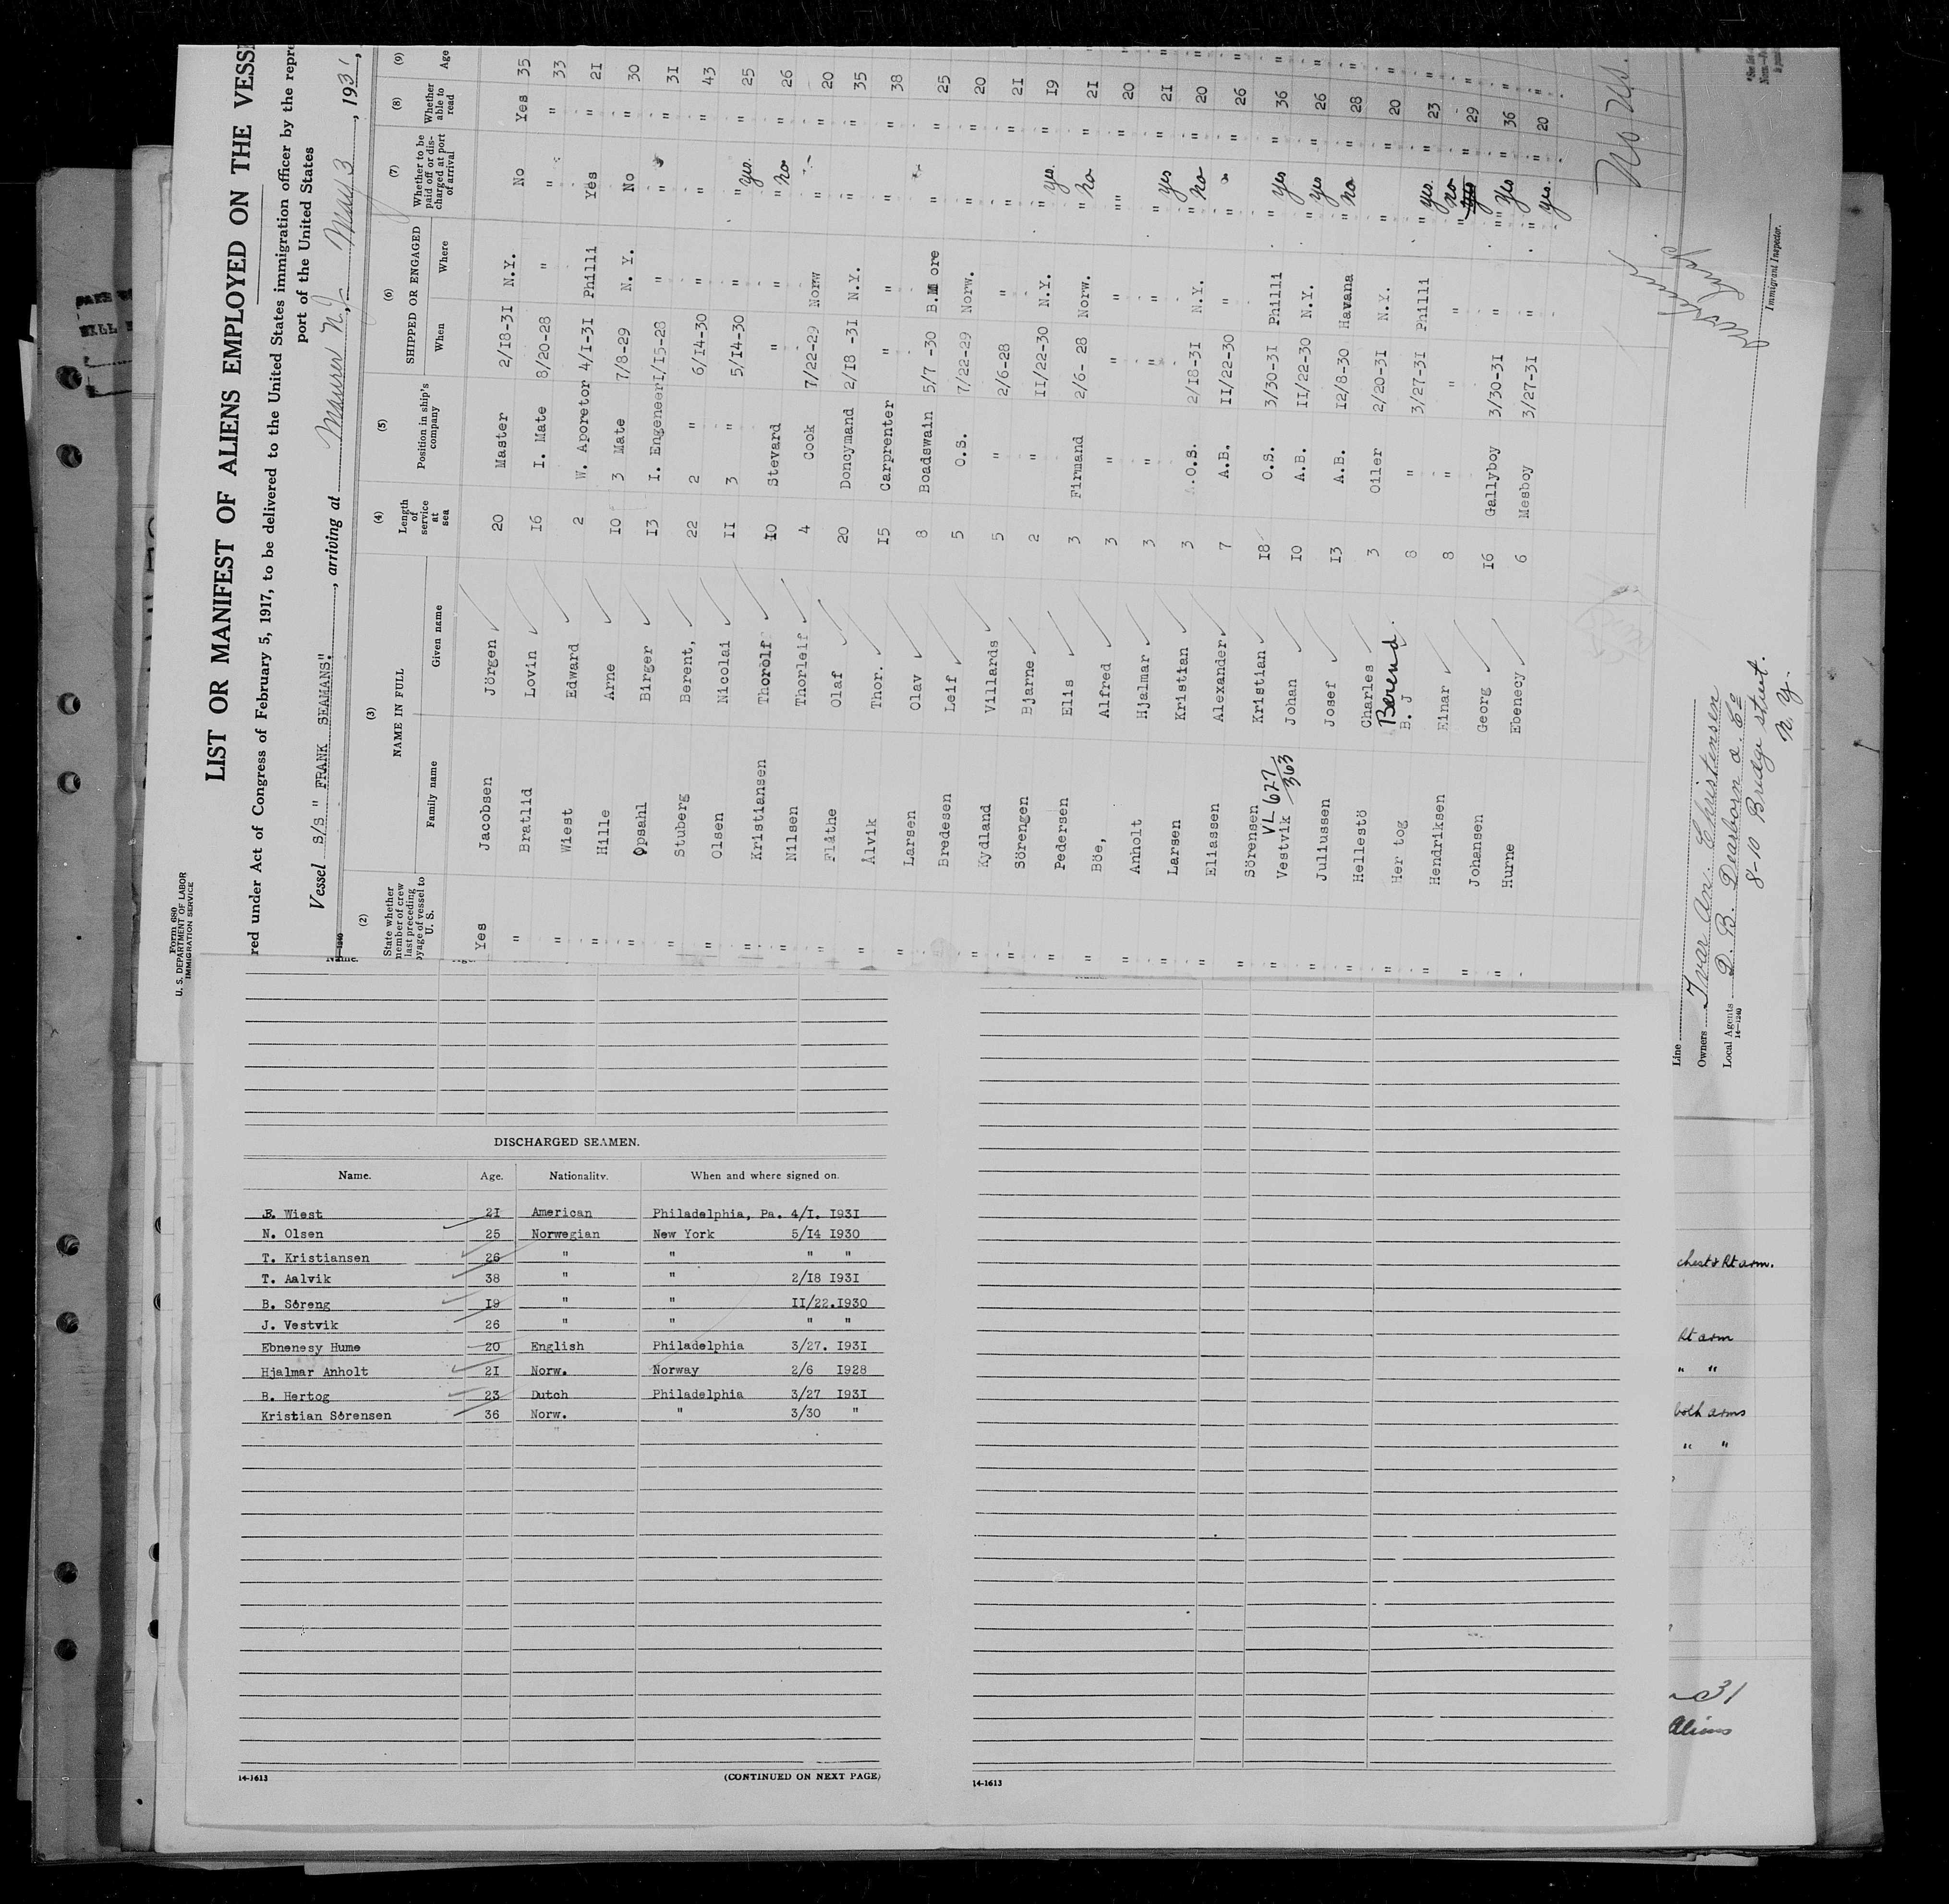 Form 680
U. S. DEPARTMENT OF LABOR
IMMIGRATION SERVICE
LIST OR MANIFEST OF ALIENS EMPLOYED ON THE VESS
red under Act of Congress of February 5, 1917, to be delivered to the United States immigration officer by the repre
port of the United States
Vessel S/S " FRANK SEAMANS". , arriving at Maurer N.J. May 3 , 1931,
(2) (3) (4) (5) (6) (7) (8) (9)
State whether member of crew last preceding voyage of vessel to U. S. NAME IN FULL Family name Given name Length of service at sea Position in ship's company SHIPPED OR ENGAGED When Where Whether to be paid off or discharged at port of arrival Whether able to read Age
Yes Jacobsen Jörgen 20 Master 2/18-31 N.Y. No Yes 35
" Bratlid Lovin 16 I. Mate 8/20-28 " " " 33
" Wiest Edward 2 W. Aporetor 4/1-31 Philli Yes " 21
" Hille Arne 10 3 Mate 7/8-29 N. Y. No " 30
" Opsahl Birger 13 I. Engeneer 1/15-28 " " " 31
" Stuberg Berent, 22 2 " 6/14-30 " " " 43
" Olsen Nicolai 11 3 " 5/14-30 " " yes. " 25
" Kristiansen Thorolf 10 Stevard " " " no " 26
" Nilsen Thorleif 4 Cook 7/22-29 Norw " " 20
" Flåthe Olaf 20 Doncymand 2/18 -31 N.Y. " " 35
" Ålvik Thor. 15 Carprenter " " " " 38
" Larsen Olav 8 Boadswain 5/7 -30 B.M ore " " 25
" Bredesen Leif 5 O.S. 7/22-29 Norw. " " 20
" Kydland Villards 5 " 2/6-28 " " " 21
" Sörengen Bjarne 2 " 11/22-30 N.Y. " yes. " 19
" Pedersen Elis 3 Firmand 2/6- 28 Norw. " no " 21
" Böe, Alfred 3 " " " " " 20
" Anholt Hjalmar 3 " " " " yes " 21
" Larsen Kristian 3 A.O.S. 2/18-31 N.Y. " no " 20
" Eliassen Alexander 7 A.B. 11/22-30 " " " 26
" Sörensen Kristian 18 O.S. 3/30-31 Philli " yes " 36
VL 627/363
" Vestvik Johan 10 A.B. 11/22-30 N.Y. " yes " 26
" Juliussen Josef 13 A.B. 12/8-30 Havana " no " 28
" Hellestö Charles 3 Oiler 2/20-31 N.Y. " " 20
Berend.
" Her tog B. J 8 " 3/27-31 Philli " yes. " 23
" Hendriksen Einar 8 " " " " no " 29
" Johansen Georg 16 Gallyboy 3/30-31 " " yes " 36
" Hurne Ebenecy 6 Mesboy 3/27-31 " " yes. " 20
No US.
Immigrant Inspector.
Line
Owners Ivar An. Christensen
Local Agents D. B. Dearborn a. Co
14—1240
8-10 Bridge street.
N. Y.
DISCHARGED SEAMEN.
Name. Age. Nationality. When and where signed on.
E. Wiest 21 American Philadelphia, Pa. 4/1. 1931
N. Olsen 25 Norwegian New York 5/14 1930
T. Kristiansen 26 " " " "
T. Aalvik 38 " " 2/18 1931
B. Söreng 19 " " 11/22.1930
J. Vestvik 26 " " " "
Ebnenesy Hume 20 English Philadelphia 3/27. 1931
Hjalmar Anholt 21 Norw. Norway 2/6 1928
B. Hertog 23 Dutch Philadelphia 3/27 1931
Kristian Sörensen 36 Norw. " 3/30 "
14-1613
(CONTINUED ON NEXT PAGE)
14-1613
chest & Rt arm.
Rt arm
" "
both arms
" "
31
Aliens